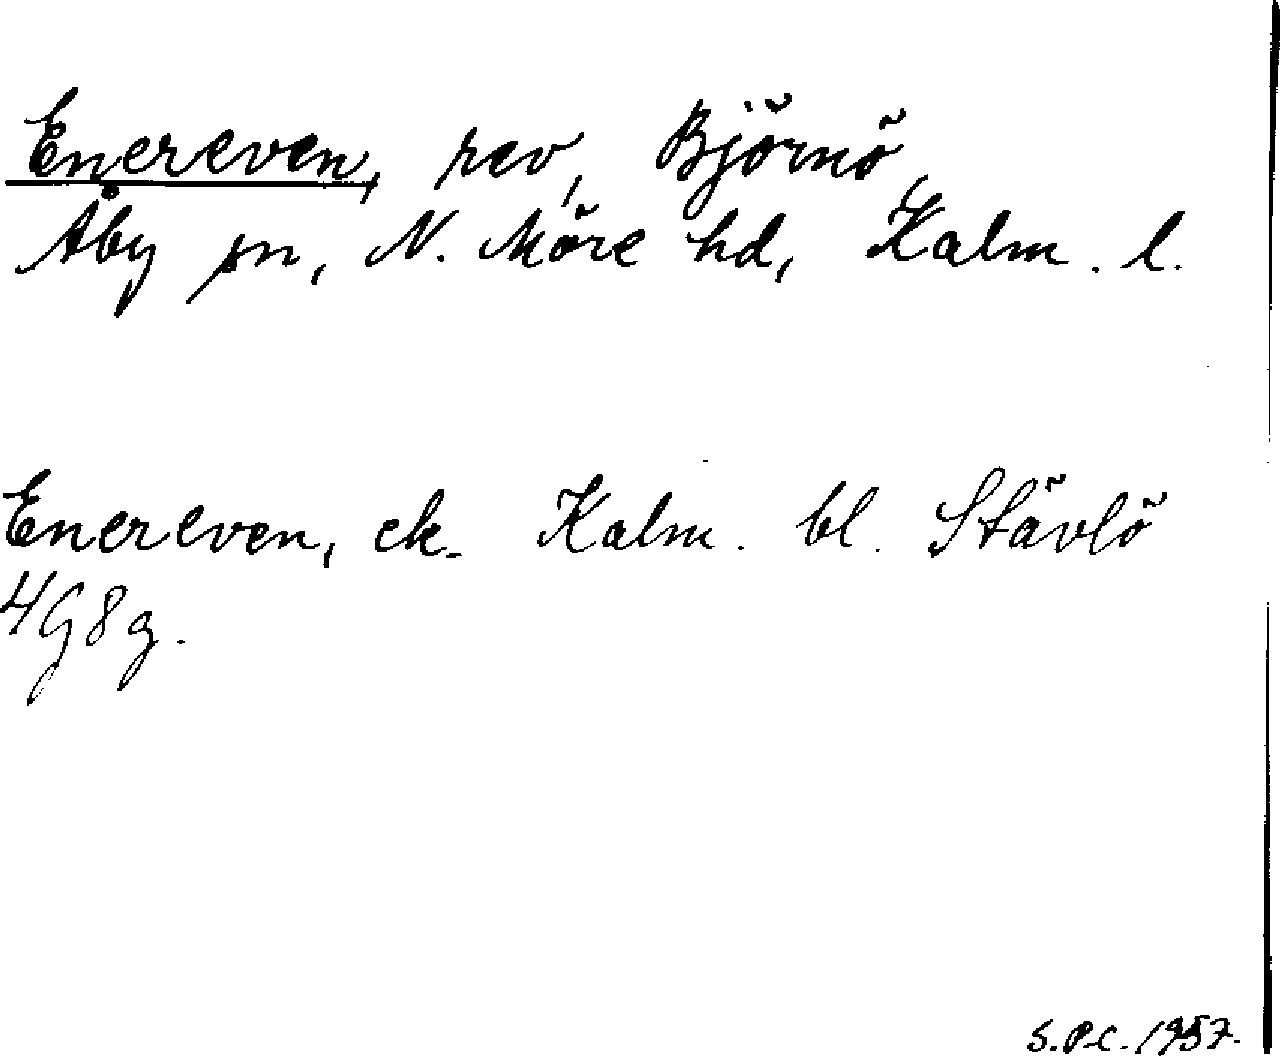 Enereven, rev, Björnö,
Åby sn, N. Möre hd, Kalm. l.
Enereven, ek. Kalm. bl. Stävlö
4G8g.
S.P.C. 1957.